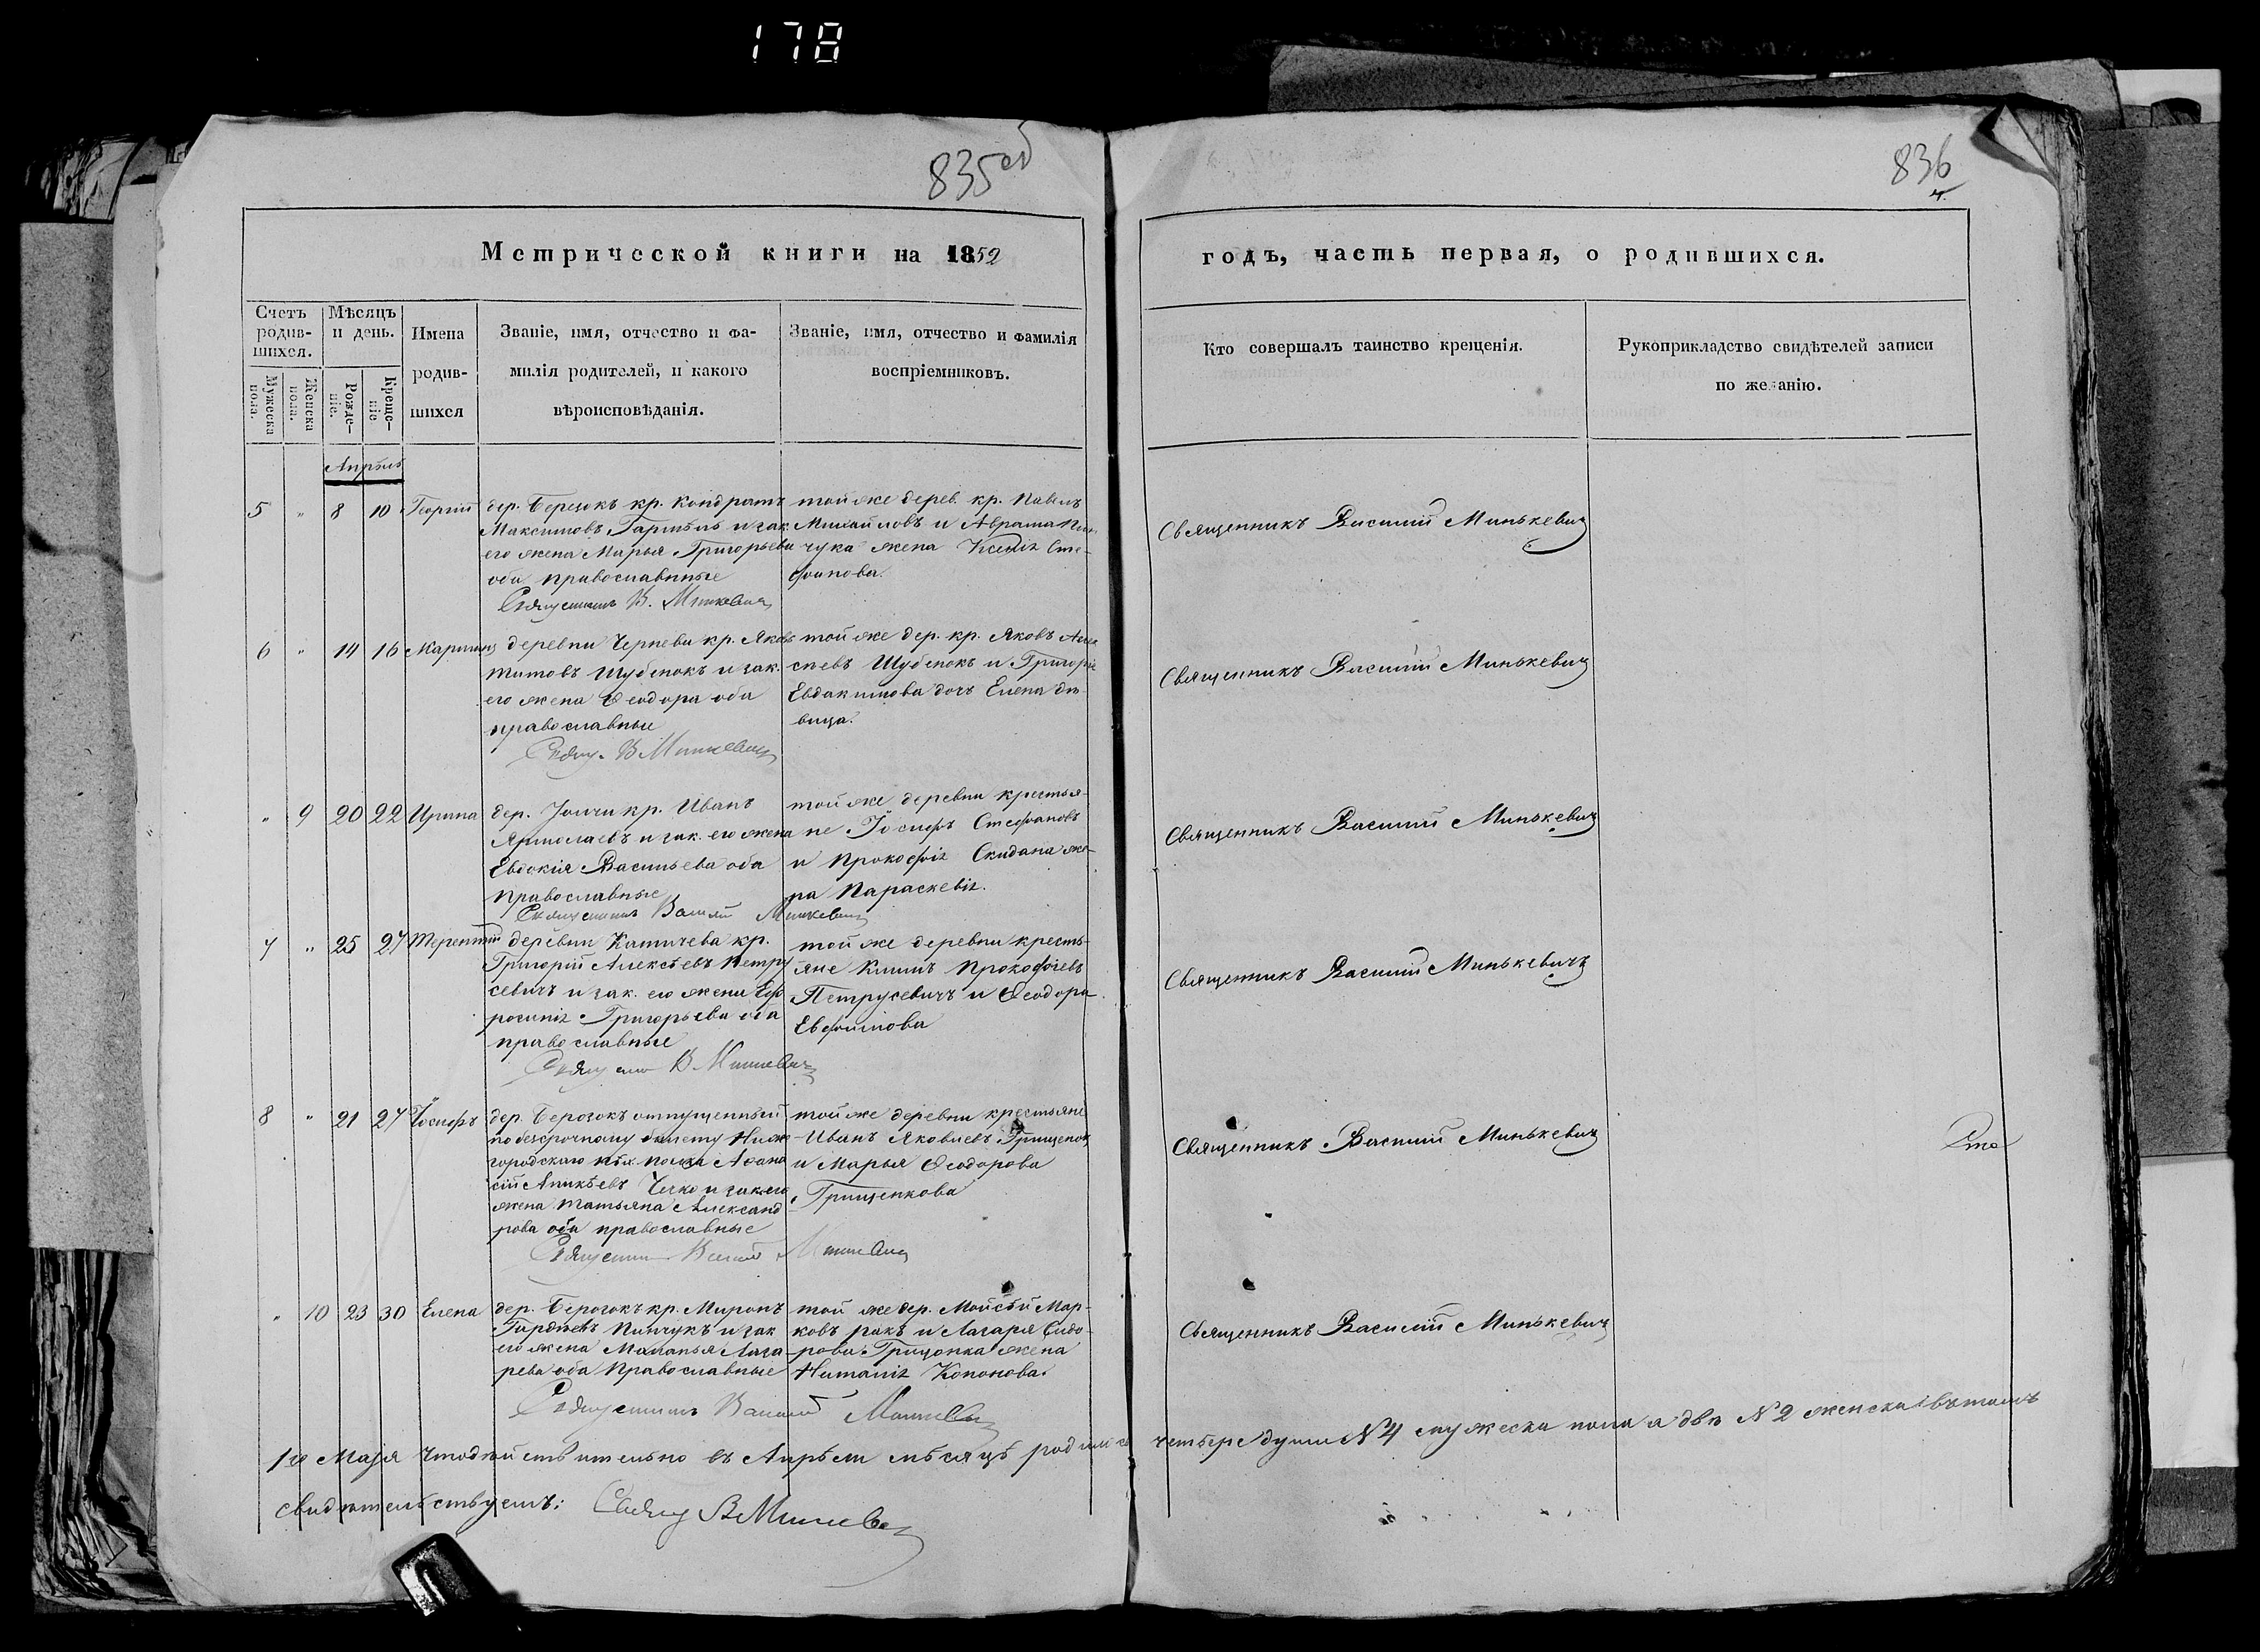 178
835 об
836
Метрической книги на 1852
годъ, часть первая, о родившихся.
Счетъ родив-шихся.
Мужеска пола.
Женска пола.
Мѣсяцъ и день.
Рожде-ніе.
Креще-ніе
Имена
родив-
шихся
Званіе, имя, отчество и фа-
милія родителей, и какого
вѣроисповѣданія.
Званіе, имя, отчество и фамилія
воспріемниковъ.
Кто совершалъ таинство крещенія.
Рукоприкладство свидѣтелей записи
по желанію.
Апрѣль
5 " 8 10 Георгій
дер. кр. Кондратъ
Максимовъ и зак.
его жена Марья Григорьева
оба православные
Священникъ В. Минкевичъ
той же дерев. кр. Павелъ
Михайловъ и Абрама Пин-
чука жена Ксенія Сте-
фанова.
Священникъ Василій Минькевичъ
6 " 14 16 Мартинъ
деревни кр. Яковъ
Титовъ Шубенокъ и зак.
его жена Ѳеодора оба
православные
Свящ. В Минкевичъ
той же дер. кр. Яковъ
Шубенокъ и Григорія
Евдакимова дочь Елена дѣ-
вица.
Священникъ Василій Минькевичъ
" 9 20 22 Ирина
дер. кр. Иванъ
и зак. его жена
Евдокія Васильева оба
православные
Священникъ Василій Минкевичъ
той же деревни крестья-
не Іосифъ Стефановъ
и Прокофія Скидана же-
на Параскевія.
Священникъ Василій Минькевичъ
7 " 25 27 Терентій
деревни кр.
Григорій Алексѣевъ Петру
севичъ и зак. его жена Еф
росинія Григорьева оба
православные
Священ В Минкевичъ
той же деревни кресть-
яне Климъ Прокофіевъ
Петрусевичъ и Ѳеодора
Евфимова
Священникъ Василій Минькевичъ
8 " 21 27 Іосифъ
дер. отпущенный
по безсрочному билету Ниже
городскаго полка Афана
сій Аникѣевъ и зак. его
жена Татьяна Александ
рова оба православные
Священник Василій Минкевич
той же деревни крестьяне
Иванъ Яковлевъ Грищенокъ
и Марья Ѳеодорова
Грищенкова
Священникъ Василій Минькевичъ
" 10 23 30 Елена
дер. кр. Миронъ
Пинчукъ и зак
его жена Маланья Лаза
рева оба православные
Священникъ Василій Минкевичъ
той же дер. Мойсѣй Мар-
ковъ и Лазаря Сидо-
рова жена
Кононова.
Священникъ Василій Минькевичъ
1го Маія Что дѣйствительно въ Апрѣли мѣсяцѣ родились четыре души № 4 мужеска пола а двѣ № 2 женска въ томъ
свидѣтельствуемъ: Свящ В Минкевичъ